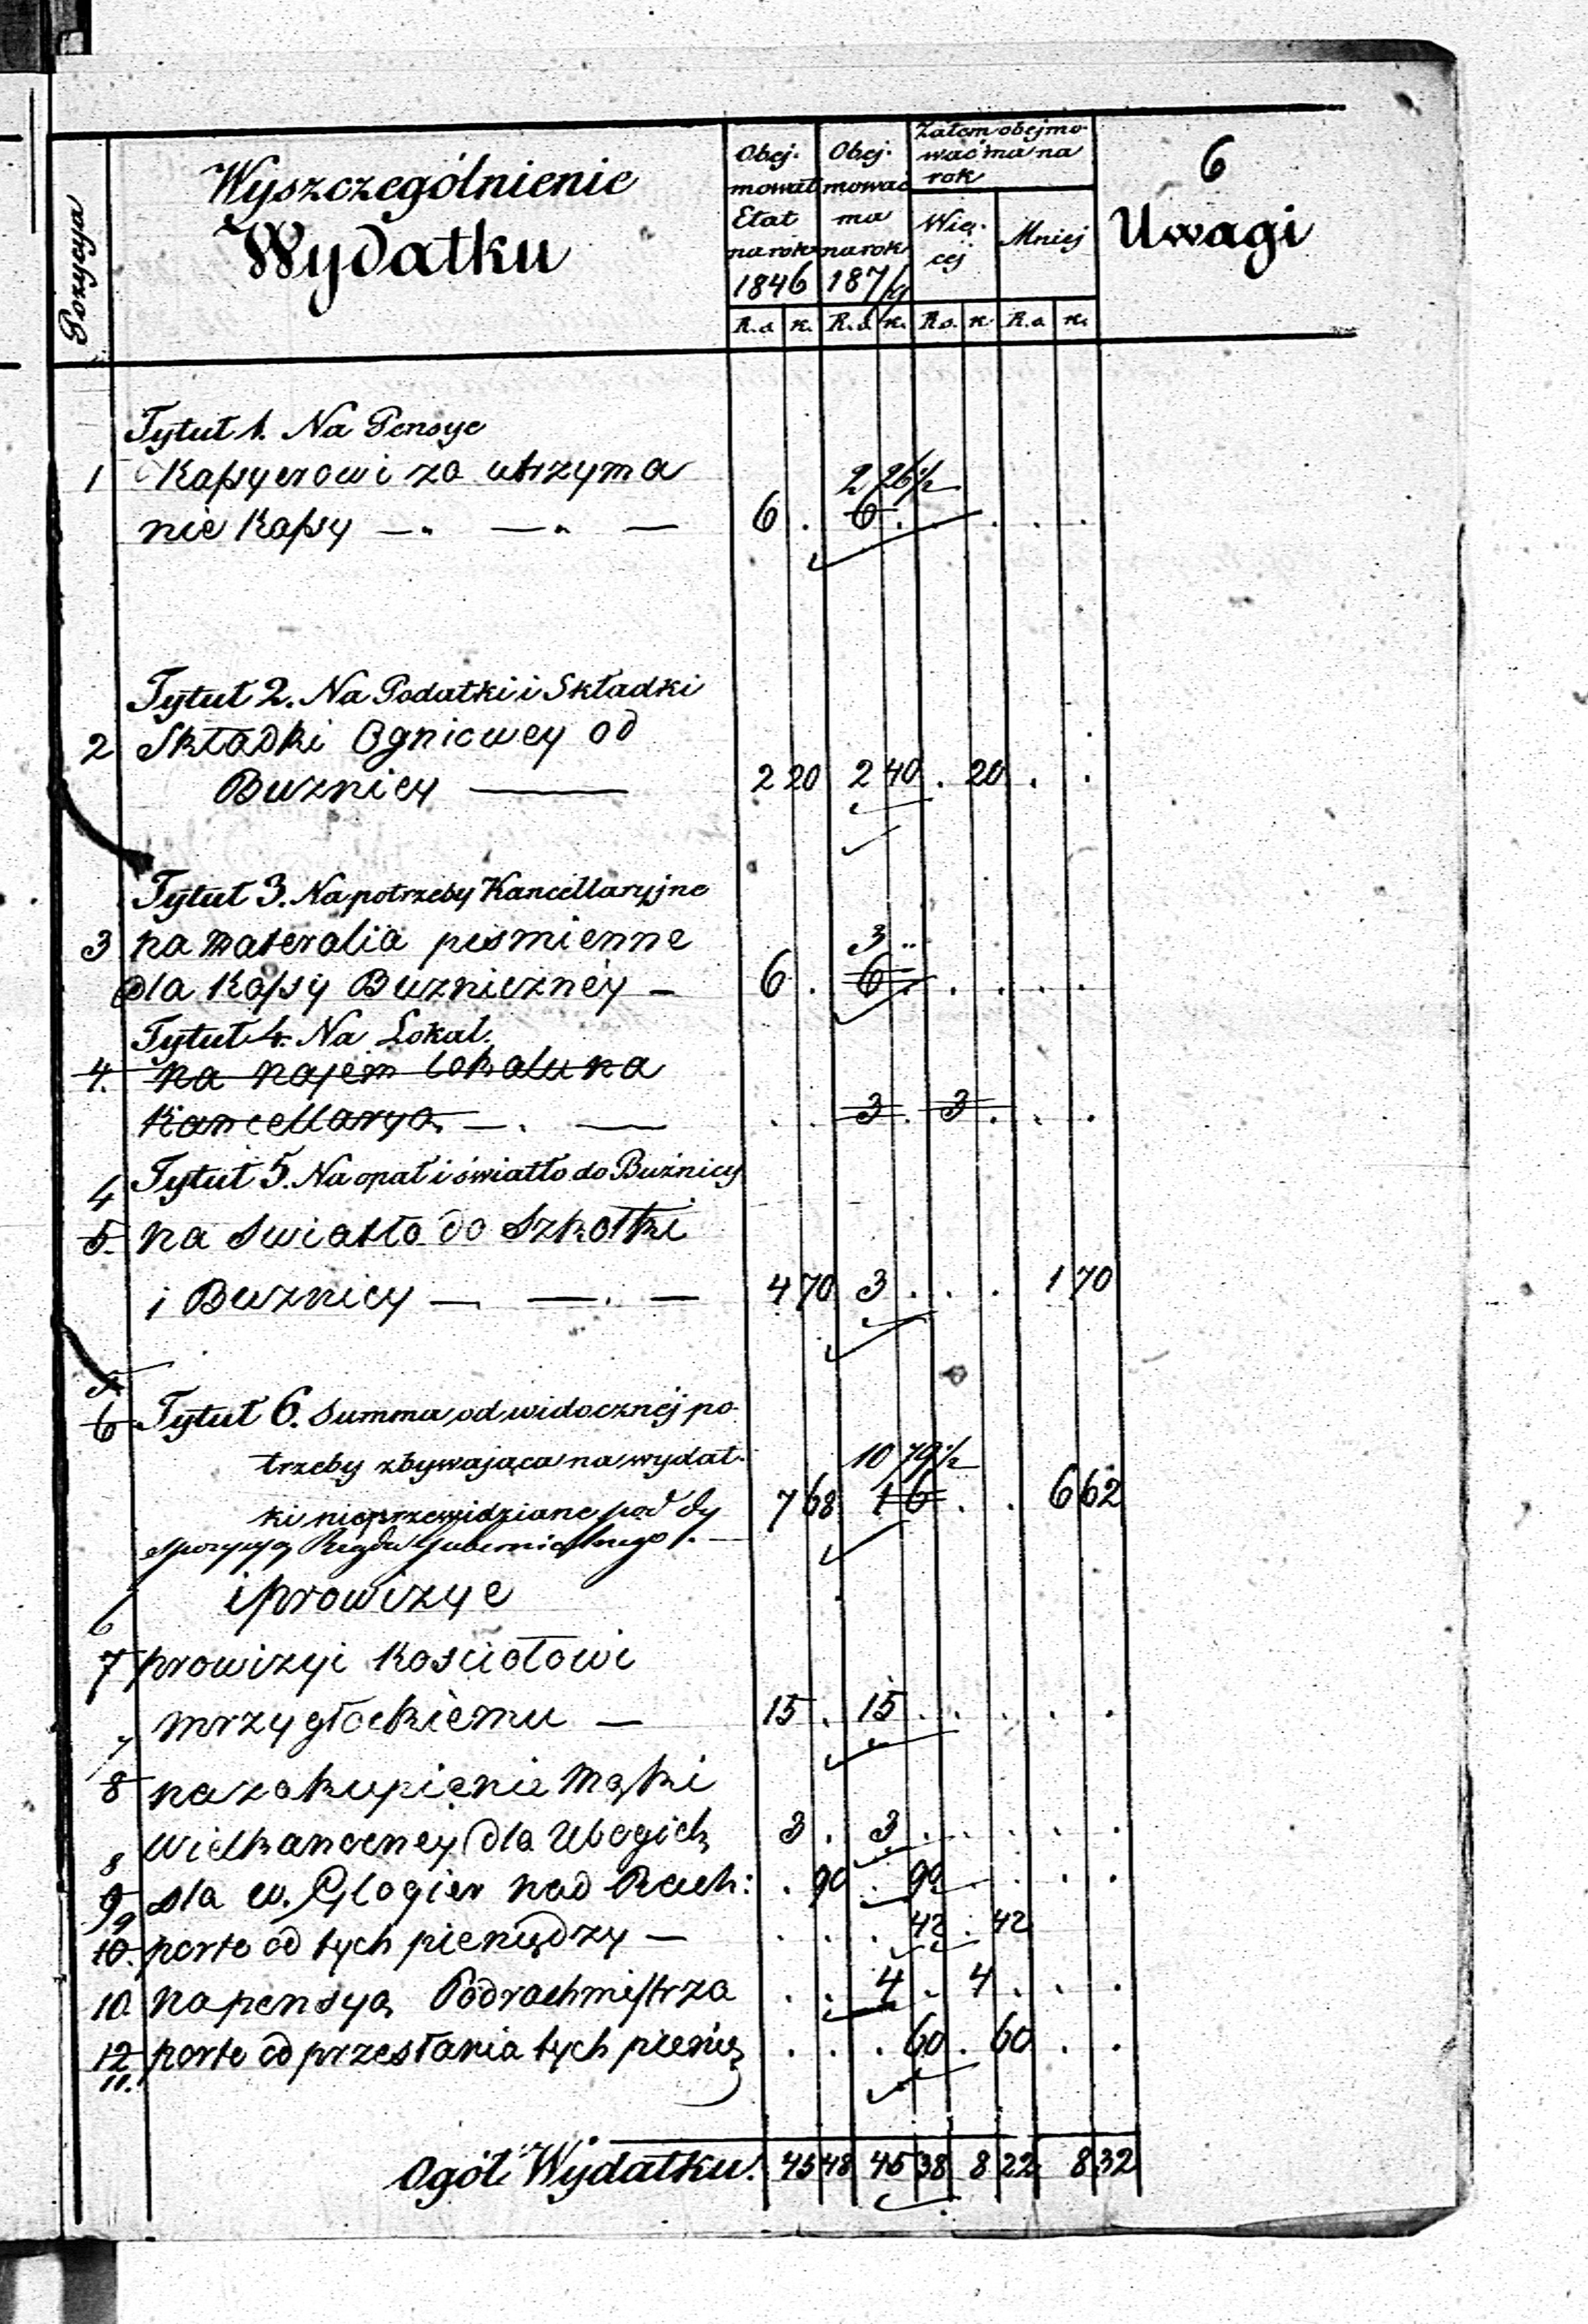 6
Pozycya
Wyszczególnienie
Wydatku
Obej-
mował
Etat
na rok
1846
Obej-
mować
ma
na rok
187/9
Zatem obejmo-
wać ma na
rok
Wię-
cej
Mniej
Uwagi
R.s. k. R.s. k. R.s. k. R.s. k.
Tytuł 1. Na Pensye
1 Kassyerowi za utrzyma 2 26½
nie Kassy — — — 6 . 6 . . . . .
Tytuł 2. Na Podatki i Składki
2 Składki Ogniowey od
Buznicy — 2 20 2 40 . 20 . .
Tytuł 3. Na potrzeby Kancellaryjne
3 na materalia pismienne 3 ..
dla Kassy Buzniczney — 6 . 6 . . . . .
Tytuł 4. Na Lokal.
4. na najem lokalu na
Kancellarya. — . — . . 3 . 3 . . .
4 Tytuł 5. Na opał i światło do Buźnicy
5. na swiatło do Szkołki
i Buznicy — — . — 4 70 3 . . . 1 70
5
6 Tytuł 6. Summa od widocznéj po-
trzeby zbywająca na wydat- 10 79½
ki nieprzewidziane pod dy 7 68 1 6 . . 6 62
spozycyą Rządu Gubernialnego. —
i prowizye
6
7 prowizyi Kosciołowi
mrzygłockiemu — 15 . 15 . . . . .
7
8 na zakupienie Mąki
Wielkanocney dla Ubogich 3 . 3 . . . . .
8
9 dla W. Glogier nad Rach: . 90 . 90 . . . .
9
10. porto od tych pieniędzy — . . . 42 . 42
10 na pensyą Podrachmistrza . . 4 . 4 . . .
12 porto od przesłania tych pienię . . . 60 . 60 . .
11.
Ogół Wydatku. 45 48 45 38 8 22 8 32